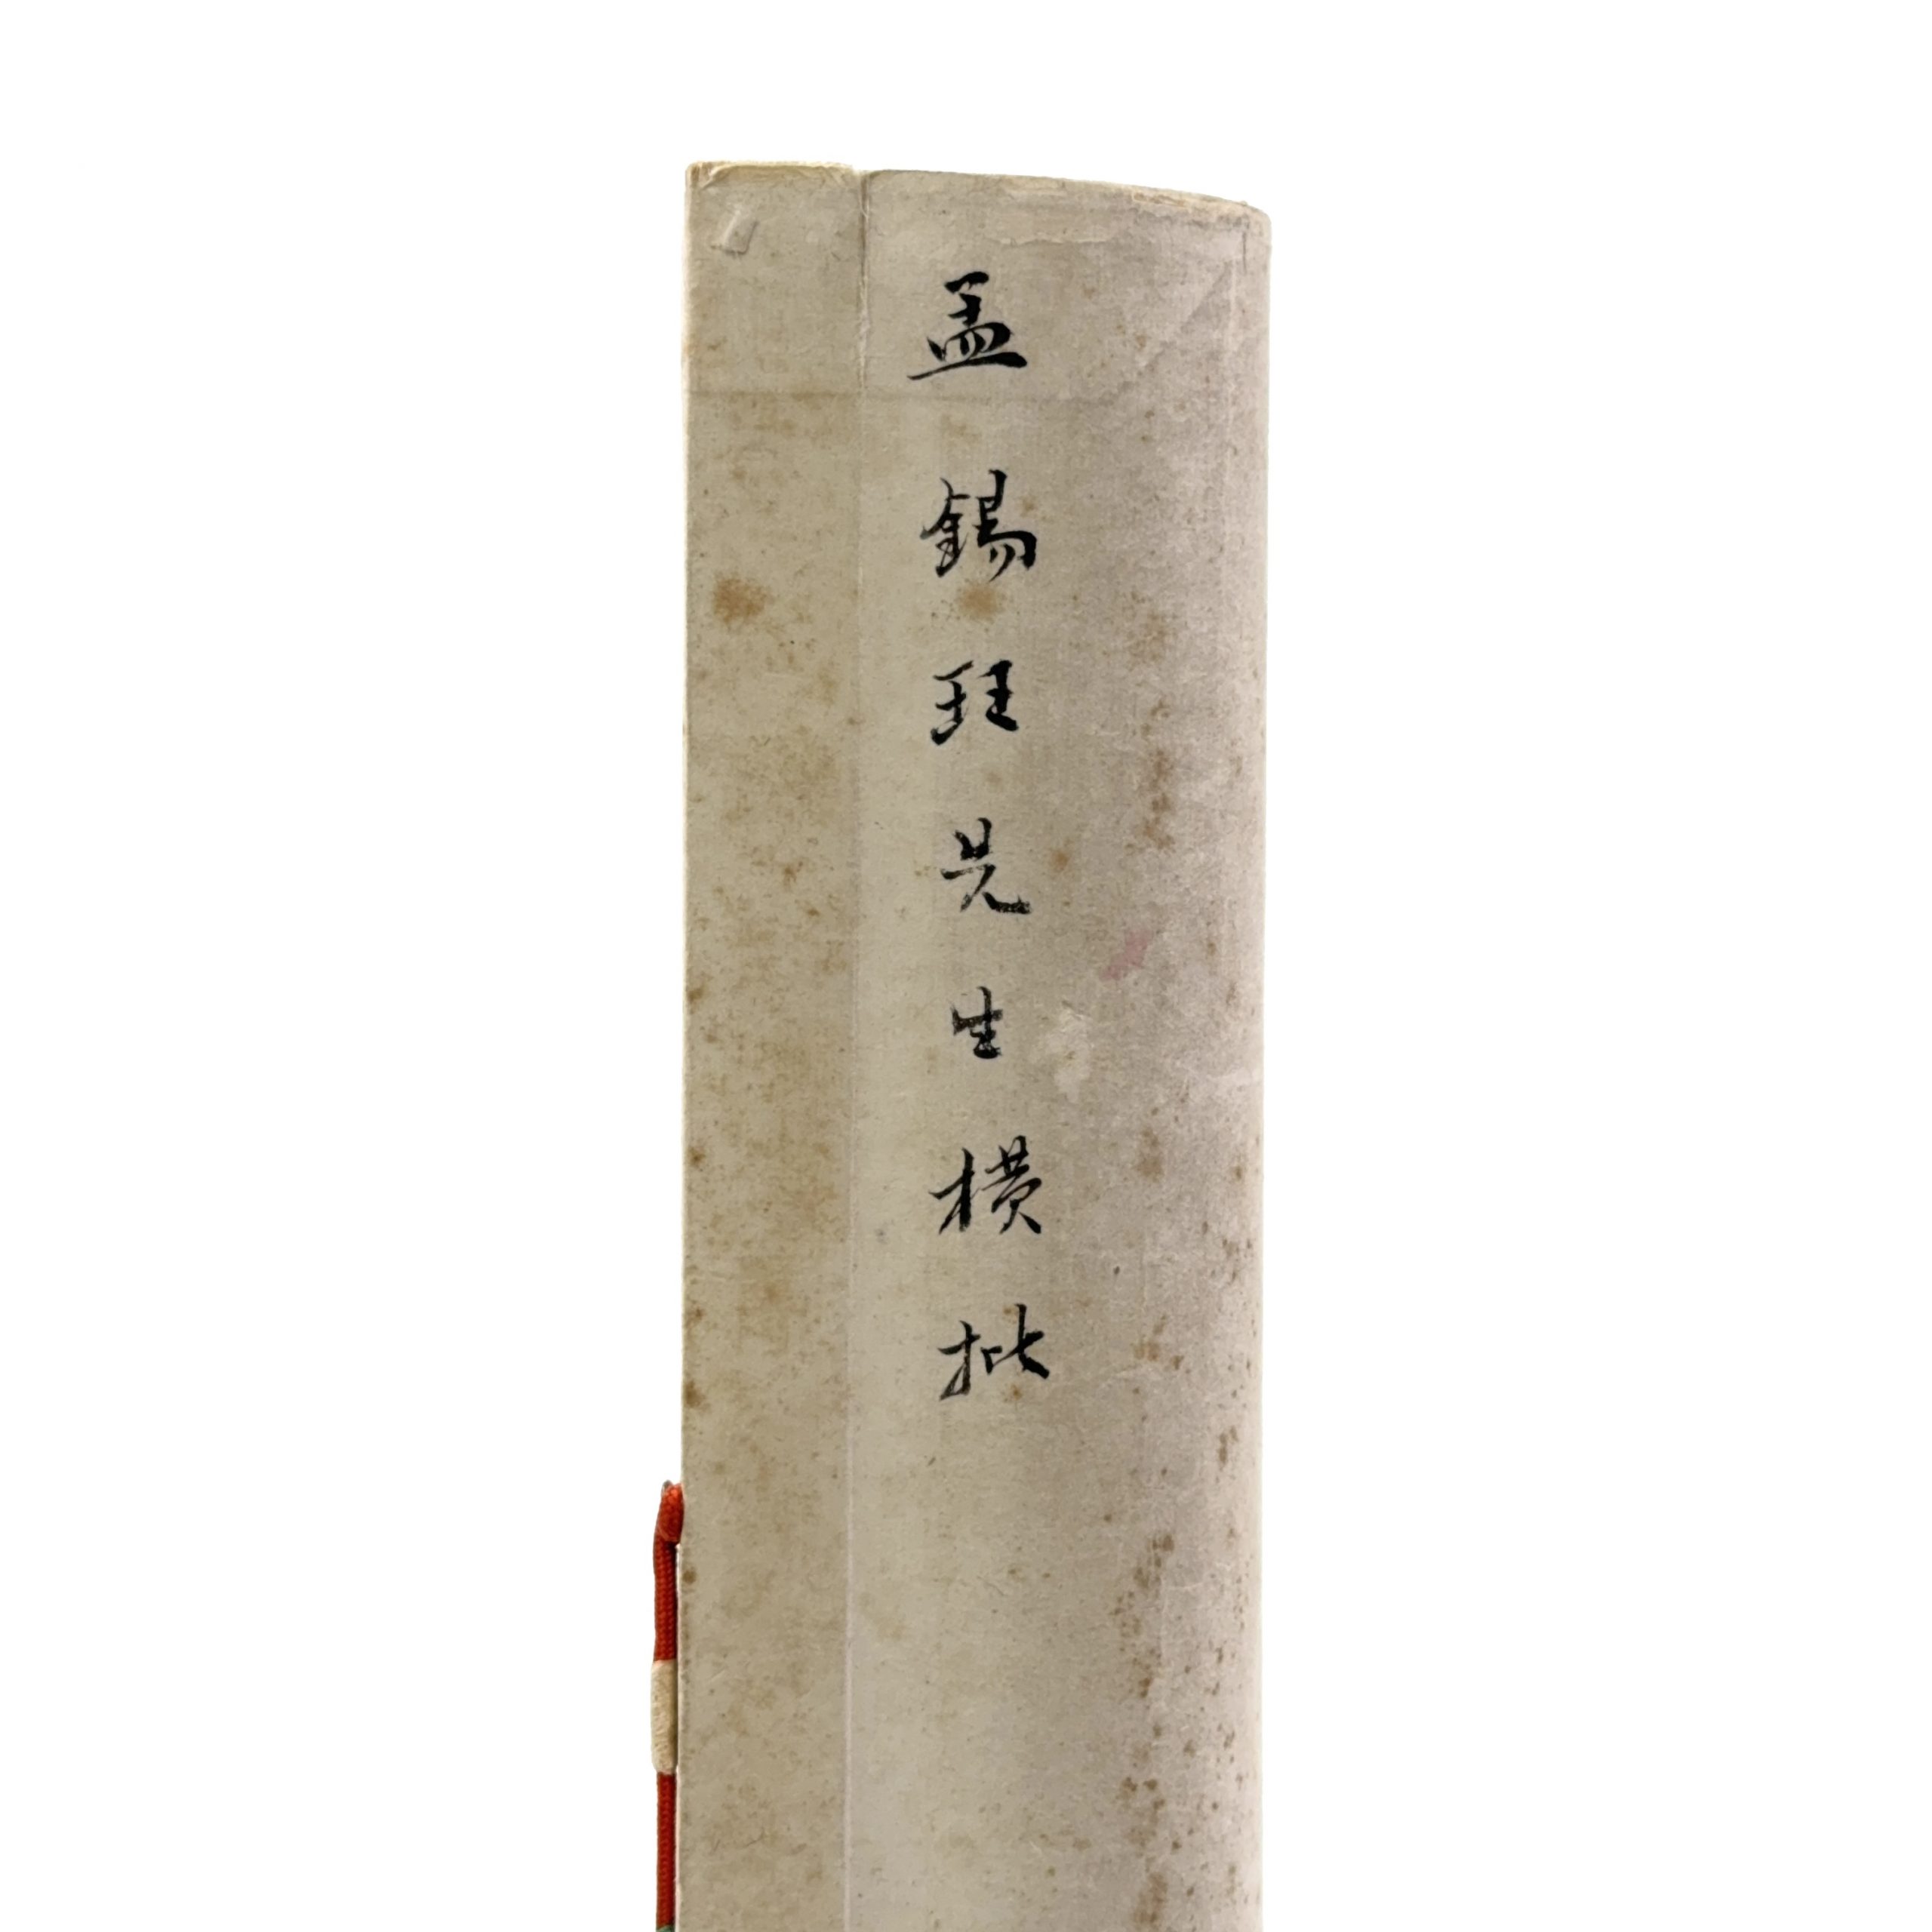 孟錫珏先生横批